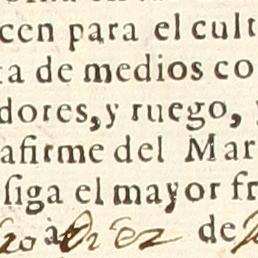 cen para el cult
ta de medios co
dores, y ruego, y
afirme del Mar
siga el mayor fr
à Diez de